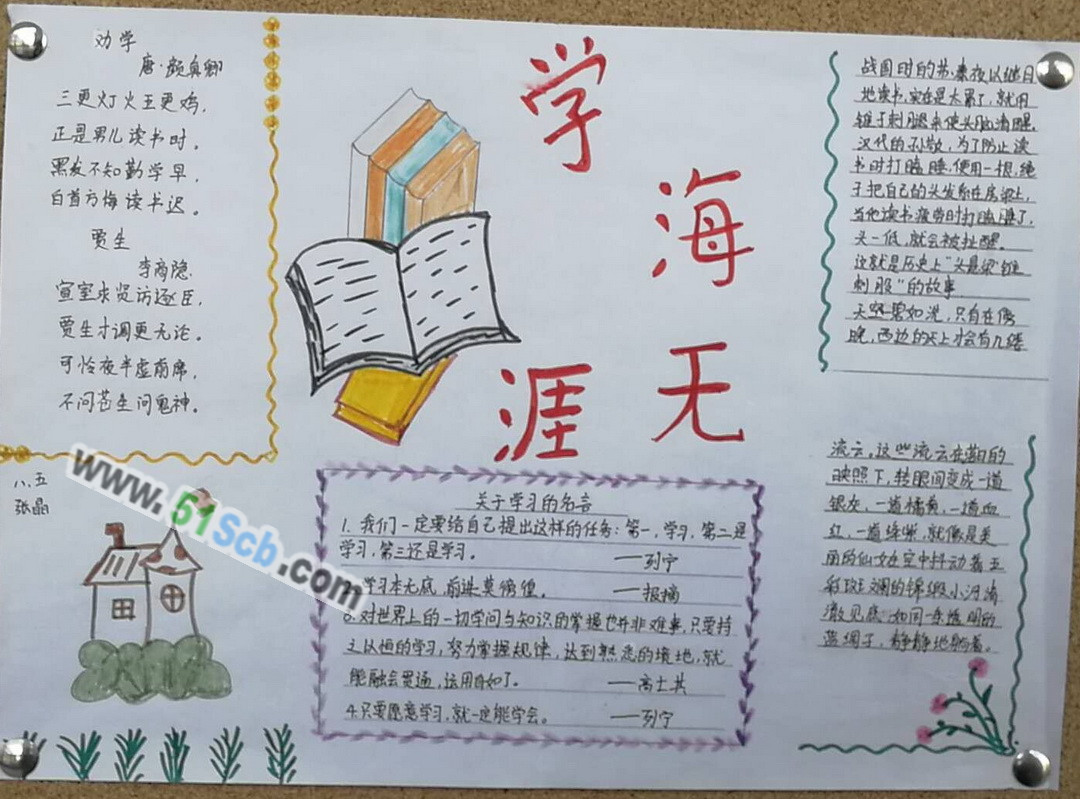 劝学
唐·颜真卿
三更灯火五更鸡，
正是男儿读书时。
黑发不知勤学早，
白首方悔读书迟。
贾生
李商隐
宣室求贤访逐臣，
贾生才调更无论。
可怜夜半虚前席，
不问苍生问鬼神。
八、五
张晶
www.51Scb.com
学
海
无
涯
关于学习的名言
1. 我们一定要给自己提出这样的任务：第一，学习，第二是
学习，第三还是学习。 ——列宁
学习本无底，前进莫徬徨。 ——报摘
3.对世界上的一切学问与知识的掌握也并非难事，只要持
之以恒的学习，努力掌握规律，达到熟悉的境地，就
能融会贯通，运用自如了。 ——高士其
4.只要愿意学习，就一定能学会。 ——列宁
战国时的苏秦夜以继日
地读书，实在是太累了，就用
锥子刺腿来使头脑清醒。
汉代的孙敬，为了防止读
书时打瞌睡，便用一根绳
子把自己的头发系在房梁上，
当他读书疲劳时打瞌睡了，
头一低，就会被扯醒。
这就是历史上"头悬梁锥
刺股"的故事
天空碧如洗，只有在傍
晚，西边的天上才会有几缕
流云，这些流云在的
映照下，转眼间变成一道
银灰，一道橘黄，一道血
红，一道绛紫，就像是美
丽的仙女在空中抖动着五
彩斑斓的锦缎小河清
澈见底，如同一条透明的
蓝绸子，静静地躺着。